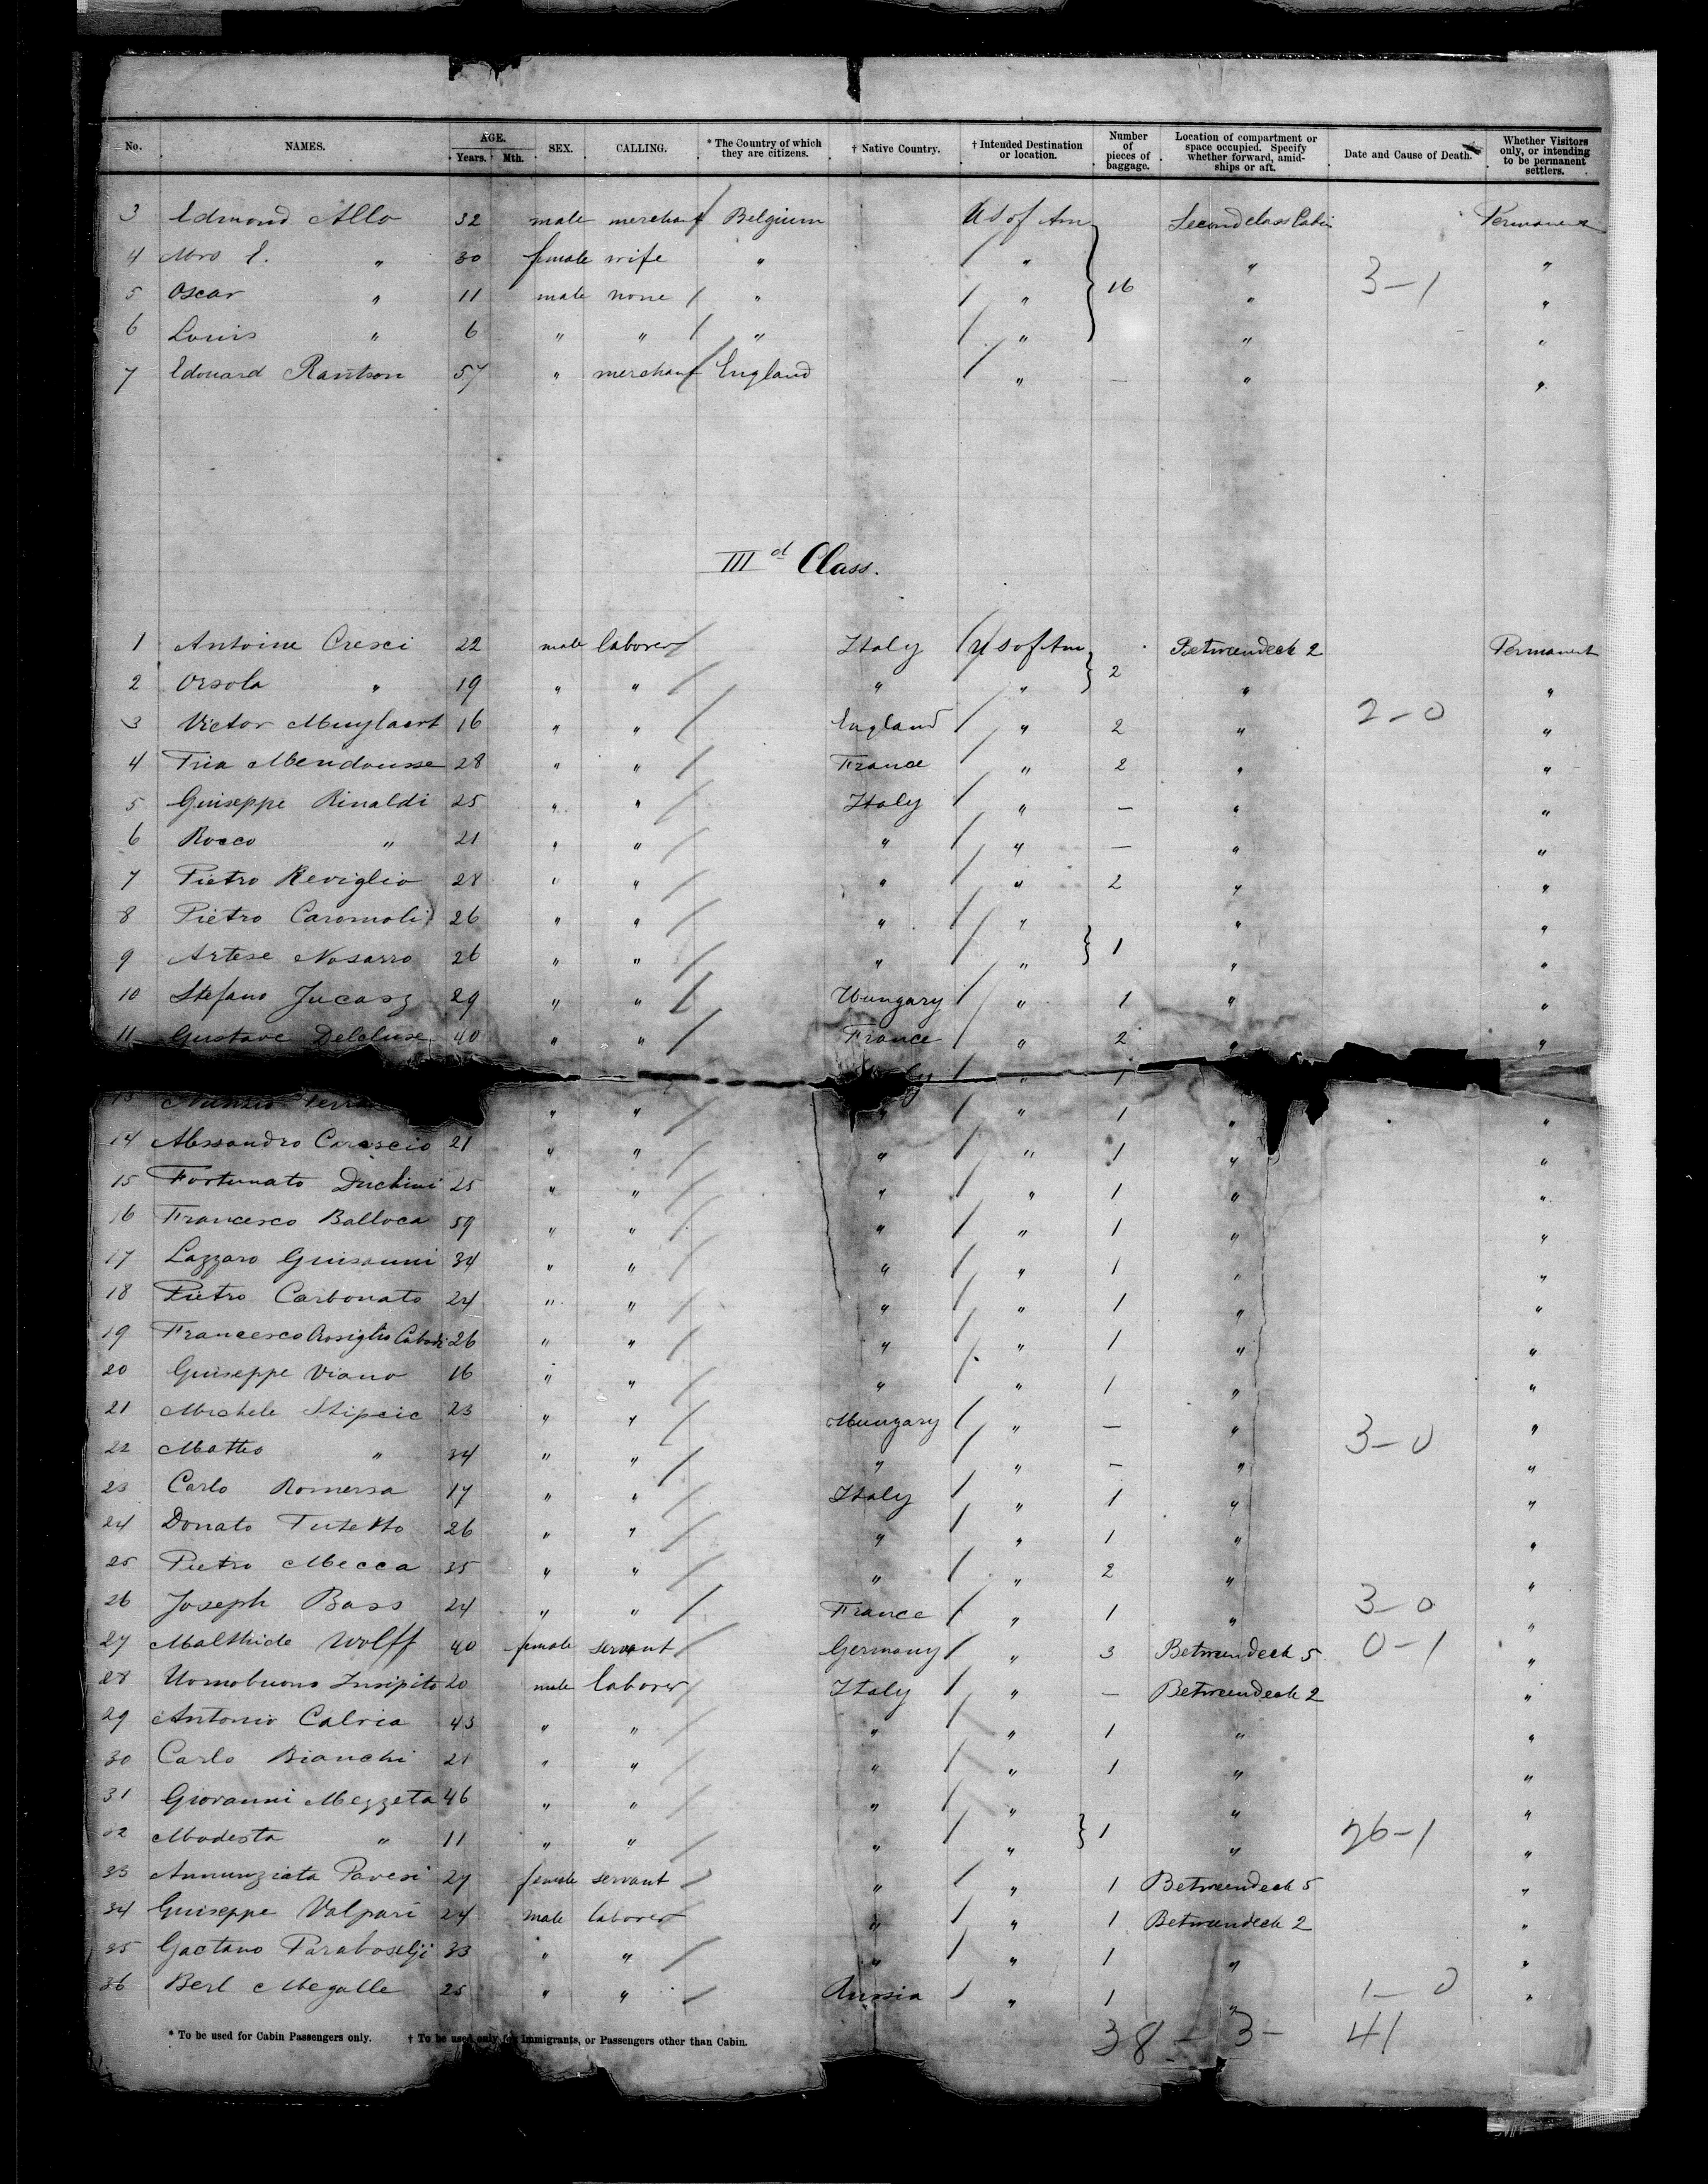 No. NAMES. AGE. Years. Mth. SEX. CALLING. * The Country of which they are citizens. † Native Country. † Intended Destination or location. Number of pieces of baggage. Location of compartment or space occupied. Specify whether forward, amidships or aft. Date and Cause of Death. Whether Visitors only, or intending to be permanent settlers.
3 Edmond Allo 32 male merchant Belgium U S of Am Second class Cabin Permanent
4 Mrs E. " 30 female wife " " " 3-1 "
5 Oscar " 11 male none " " 16 " "
6 Louis " 6 " " " " " "
7 Edouard Rantson 57 " merchant England " — " "
IIId Class.
1 Antoine Cresci 22 male laborer Italy U S of Am Betweendeck 2 Permanent
2 Orsola " 19 " " " " 2 " "
3 Victor Muylaert 16 " " England " 2 " 2-0 "
4 Tria Mendousse 28 " " France " 2 " "
5 Guiseppe Rinaldi 25 " " Italy " — " "
6 Rocco " 21 " " " " — " "
7 Pietro Reviglio 28 " " " " 2 " "
8 Pietro Caromoli 26 " " " " " "
9 Artese Nosarro 26 " " " " 1 " "
10 Stefano Jucasz 29 " " Hungary " 1 " "
11 Gustave Delcluse 40 " " France " 2 " "
" 1
13 Nunzio " " " " 1 " "
14 Alessandro Carascio 21 " " " " 1 " "
15 Fortunato Duchini 25 " " " " 1 " "
16 Francesco Balloca 59 " " " " 1 " "
17 Lazzaro Guisanni 34 " " " " 1 " "
18 Pietro Carbonato 24 " " " " 1 " "
19 Francesco Rosiglio Cabodi 26 " " " " 1 " "
20 Guiseppe Viano 16 " " " " 1 " "
21 Michele Stipcic 23 " " Hungary " — " 3-0 "
22 Matteo " 34 " " " " — " "
23 Carlo Romersa 17 " " Italy " 1 " "
24 Donato Tutetto 26 " " " " 1 " "
25 Pietro Mecca 35 " " " " 2 " "
26 Joseph Bass 24 " " France " 1 " 3-0 "
27 Malthide Wolff 40 female servant Germany " 3 Betweendeck 5 0-1 "
28 Uomobuono Insipito 20 male laborer Italy " — Betweendeck 2 "
29 Antonio Calvia 43 " " " " 1 " "
30 Carlo Bianchi 21 " " " " 1 " "
31 Giovanni Mezzeta 46 " " " " " "
32 Modesta " 11 " " " " 1 " 26-1 "
33 Annunziata Pavesi 27 female servant " " 1 Betweendeck 5 "
34 Guiseppe Valpari 24 male laborer " " 1 Betweendeck 2 "
35 Gaetano Paraboselji 33 " " " " 1 " "
36 Berl Megalle 25 " " Russia " 1 " 1-0 "
38 - 3 - 41
* To be used for Cabin Passengers only. † To be used only for Immigrants, or Passengers other than Cabin.